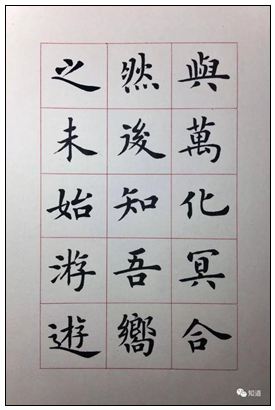 與萬化冥合
然後知吾嚮
之未始游遊
知道